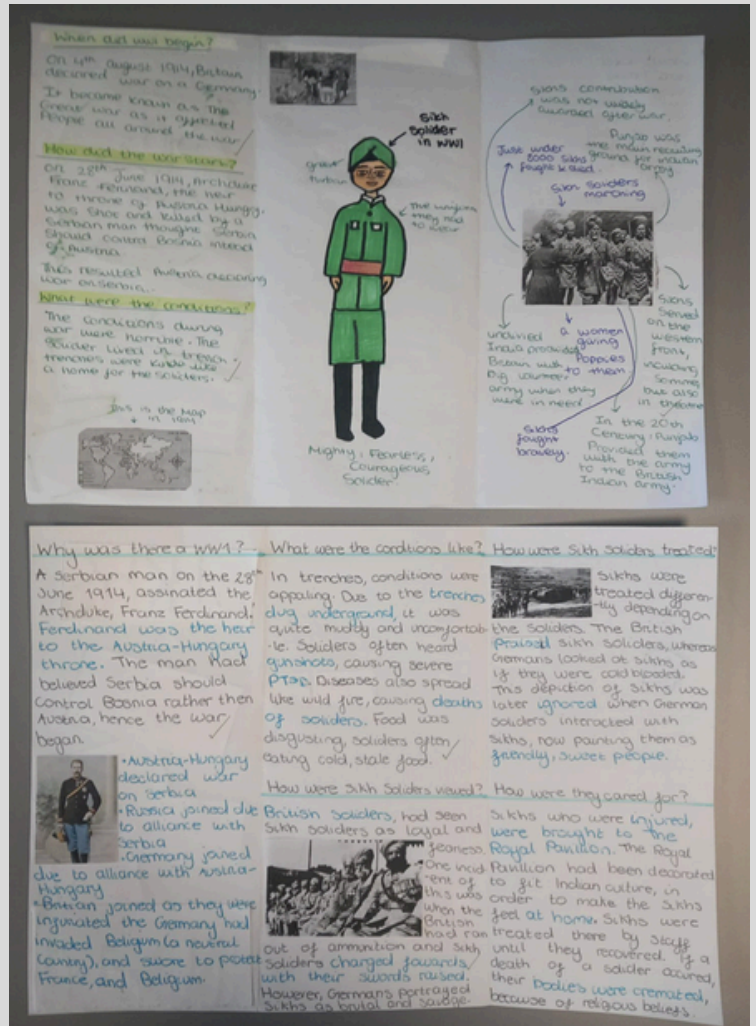 When did WW1 begin?
On 4th August 1914, Britain
declared war on a Germany.
It became known as the
Great war as it affected
People all around the war
How did the war start?
On 28th June 1914, Archduke
Franz Ferdinand, the heir
to throne of Austria Hungry.
was shot and killed by a
Serbian man thought Serbia
should control Bosnia intead
of Austria
This resulted Austria declaring
war on Serbia.
What were the conditions?
The conditions during
war were horrible. The
solider lived in trench.
trenches were kinda like
a home for the soliders.
This is the Map
in 1914
Sikh
Solider
in WW1
green
turban
The uniform
they had
to wear
Mighty, Fearless,
Courageous
Solider
Sikhs contribution
was not widely
awarded after war.
Punjab was
the main recruiting
ground for Indian
army
Just under
8000 Sikhs
fought & died.
Sikh Soliders
marching
undivied
India provided
Britain with
Big volunteer
army when they
were in need
a women
giving
Poppies
to them
Sikhs
Served
on the
western
front,
including
Somme
but also
in theatre
Sikhs
fought
bravely.
In the 20th
Century, Punjab
Provided them
with the army
to the British
Indian army.
Why was there a WW1?
A Serbian man on the 28th
June 1914, assinated the
Archduke, Franz Ferdinand.
Ferdinand was the heir
to the Austria-Hungary
throne. The man had
believed Serbia should
control Bosnia rather then
Austria, hence the war
began.
• Austria-Hungary
declared war
on Serbia
• Russia joined due
to alliance with
Serbia
• Germany joined
due to alliance with Austria-
Hungary
• Britian joined as they were
infuriated the Germany had
invaded Beligium (a neutral
country), and swore to protect
France, and Beligium.
What were the condtions like?
In trenches, conditions were
appaling. Due to the trenches
dug underground, it was
quite muddy and uncomfortab-
le. Soliders often heard
gunshots, causing severe
PTSD. Diseases also spread
like wild fire, causing deaths
of soliders. Food was
disgusting, soliders often
eating cold, stale food.
How were Sikh Soliders viewed?
British soliders, had seen
Sikh soliders as loyal and
fearless.
One incid
-ent of
this was
when the
British
had ran
out of ammontion and Sikh
Soliders charged fowards
with their swords raised.
However, Germans portrayed
Sikhs as brutal and savage.
How were Sikh Soliders treated?
Sikhs were
treated differen-
tly depending on
the soliders. The British
praised Sikh soliders, whereas
Germans looked at sikhs as
if they were coldblooded.
This depiction of Sikhs was
later ignored when German
soliders interacted with
Sikhs, now painting them as
friendly, sweet people.
How were they cared for?
Sikhs who were injured,
were brought to the
Royal Pavilion. The Royal
Pavilion had been decorated
to fit Indian culture, in
order to make the Sikhs
feel at home. Sikhs were
treated there by staff
until they recovered. If a
death of a solider accured,
their bodies were cremated,
because of religious beliefs.